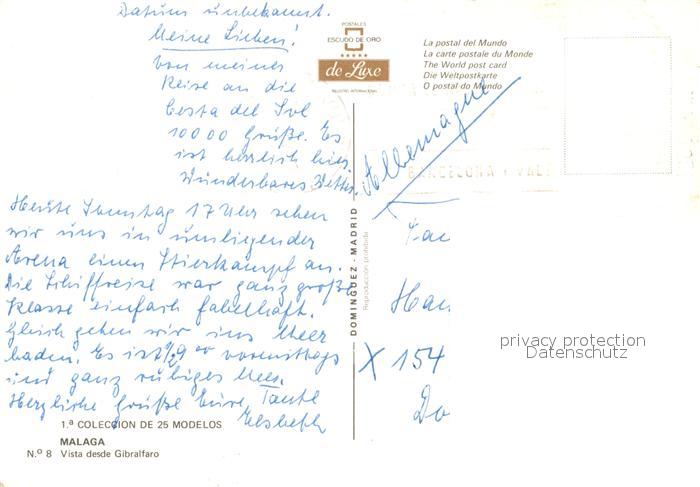 Datum unbekannt.
Meine Lieben!
Von meiner
Reise an die
Costa del Sol
10000 Grüße. Es
ist herrlich hier.
Wunderbares Wetter.
Heute Sonntag 17 Uhr sehen
wir uns in umliegender
Arena einen Stierkampf an.
Die Schiffreise war ganz große
Klasse einfach fabelhaft.
Gleich gehen wir ins Meer
baden. Es ist 1/2 9 00 vormittags
und ganz ruhiges Meer.
Herzliche Grüße Eure Tante
Elsbeth
1.ª COLECCION DE 25 MODELOS
MALAGA
N.º 8 Vista desde Gibralfaro
POSTALES
ESCUDO DE ORO
de Luxe
REGISTRO INTERNACIONAL
DOMINGUEZ - MADRID
Reproducción prohibida
La postal del Mundo
La carte postale du Monde
The World post card
Die Weltpostkarte
O postal do Mundo
Allemagne
BARCELONA Y VAL
Fac
Han
X 154
Do
privacy protection
Datenschutz